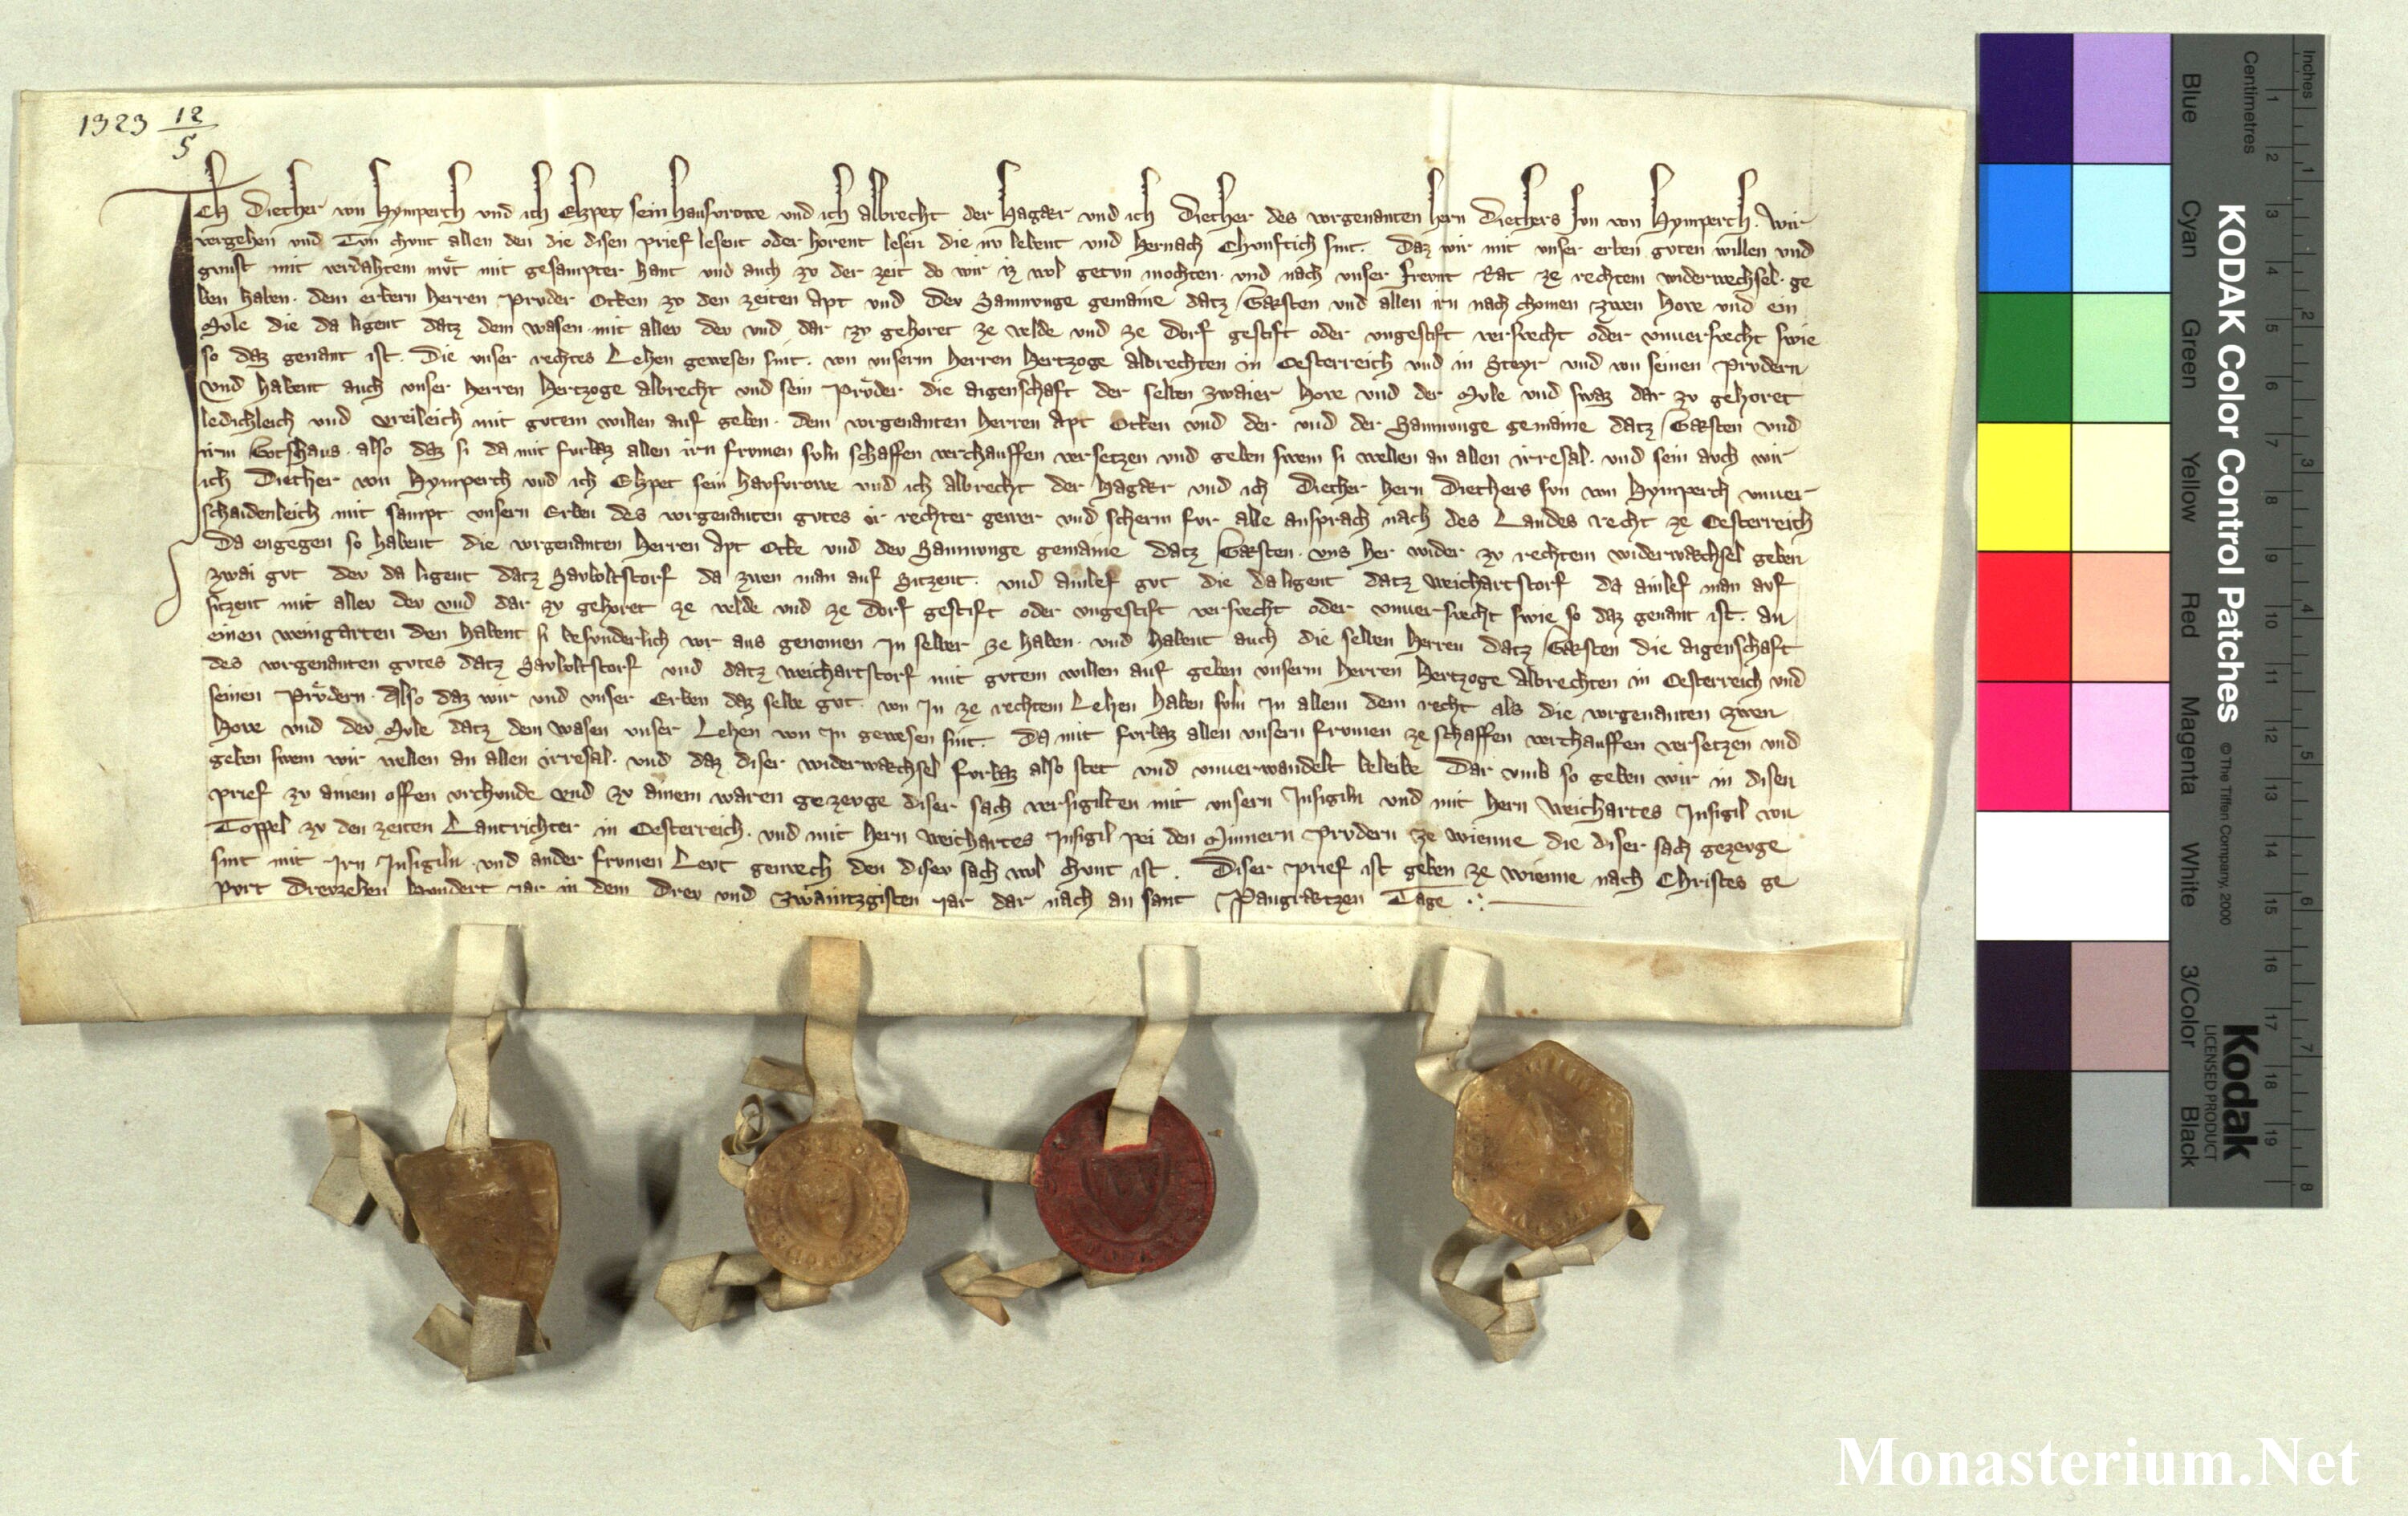 1323 12/5
Ich Diether von Hymperch und ich Elzpet sein hausvrowe und ich Albrecht der Hagær und ich Diether des vorgenanten hern Diethers sun von Hymperch. Wir
vergehen und Tůn chunt allen den die disen prief lesent oder horent lesen die nv lebent und hernach Chunftich sint. Daz wir mit unser erben guten willen und
gunst mit verdahtem můt mit gesampter hant und auch zv der zeit do wir iz wol getvn mochten. und nach unser frevnt Rat ze rechtem widerwechsel. ge
ben haben. dem erbern herren Prvder Otten zv den zeiten Apt und der Samnunge gemaine datz Gærsten und allen irn nach chomen zwen hove und ein
Mvle die da ligent datz dem wasen mit allev dev und dar zv gehoret ze velde und ze dorf gestift oder ungestift versvecht oder unversvecht swie
so daz genant ist. Die unser rechtes Lehen gewesen sint. von unserm herren Hertzoge Albrechten in Oesterreich und in Steyr und von seinen Prvdern
Und habent auch unser herren Hertzoge Albrecht und sein Průder die aigenschaft der selben zwaier hove und der Mvle und swaz dar zv gehoret
ledichleich und vreileich mit gutem willen auf geben. dem vorgenanten herren Apt Otten und der und der Samnunge gemaine datz Gærsten und
irm Gotshaus. also daz si da mit furbaz allen irn frumen suln schaffen verchauffen versetzen und geben swem si wellen an allen irresal. und sein auch wir
ich Diether von Hymperch und ich Elzpet sein hausvrowe und ich Albrecht der Hagær und ich Diether hern Diethers sun von Hymperch unver
schaidenleich mit sampt unsern Erben des vorgenanten gutes ir rechter gewer und scherm fur alle ansprach nach des Landes recht ze Oesterreich
Da engegen so habent die vorgenanten herren Apt Otte und dev Samnunge gemaine datz Gærsten. uns her wider zv rechtem widerwæchsel geben
zwai gut dev da ligent datz Savboltstorf da zwen man auf Sitzent. und ainlef gut die da ligent datz weichartstorf da ainlef man auf
sitzent mit allev dev und dar zv gehoret ze velde und ze dorf gestift oder ungestift versvecht oder unversvecht swie so daz genant ist. an
einen weingarten den habent si besunderlich vor aus genomen In selber ze haben. und habent auch die selben herren datz Gærsten die aigenschaft
des vorgenanten gutes datz Savboltstorf und datz weichartstorf mit gutem willen auf geben unserm herren Hertzoge Albrechten in Oesterreich und
seinen Průdern. Also daz wir und unser Erben daz selbe gut. von In ze rechtem Lehen haben suln In allem dem recht als die vorgenanten zwen
hove und dev Mvle datz dem wasen unser Lehen von In gewesen sint. Da mit furbaz allen unsern frumen ze schaffen verchauffen versetzen und
geben swem wir wellen an allen irresal. und daz diser widerwæchsel furbaz also stet und unverwandelt beleibe Dar umb so geben wir in disen
prief zv ainem offen urchunde und zv ainem waren gezevge diser sach versigilten mit unsern Insigiln und mit hern Weichartes Insigil von
Toppel zv den zeiten Lantrichter in Oesterreich. und mit hern weichartes Insigil pei den Minnern prvdern ze wienne die diser sach gezevge
sint mit Irn Insigiln und ander frumen Levt genvech den disev sach wol chunt ist. Diser prief ist geben ze wienne nach Christes ge
purt Drevzehen hundert iar in dem Drev und zwaintzgisten iar dar nach an sant Pangrætzen Tage
KODAK Color Control Patches
©The Tiffen Company, 2000
Kodak
LICENSED PRODUCT
Inches
1 2 3 4 5 6 7 8
Centimetres
1 2 3 4 5 6 7 8 9 10 11 12 13 14 15 16 17 18 19
Blue Cyan Green Yellow Red Magenta White 3/Color Black
Monasterium.Net